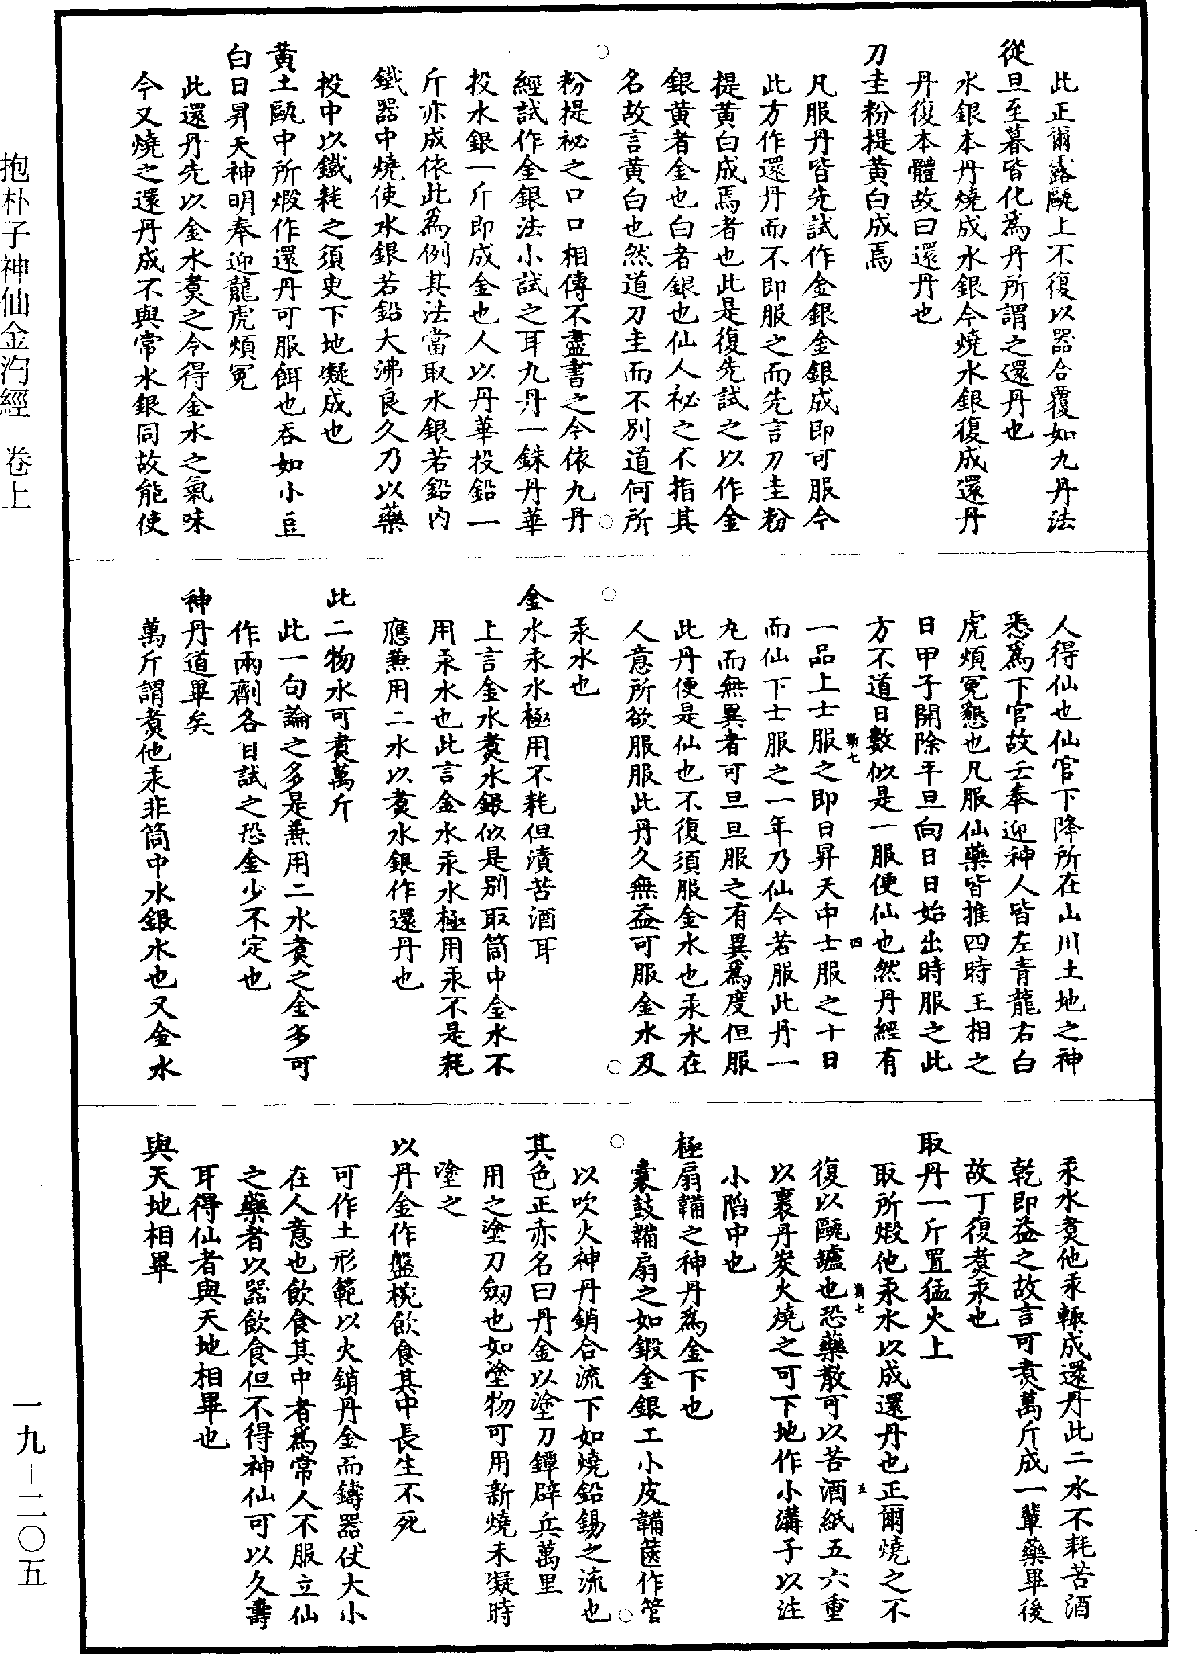 此正爾露甌上不復以器合覆如九丹法
從旦至暮皆化為丹所謂之還丹也
水銀本丹燒成水銀今燒水銀復成還丹
丹復本體故曰還丹也
刀圭粉提黃白成焉
凡服丹皆先試作金銀金銀成即可服今
此方作還丹而不即服之而先言刀圭粉
提黃白成焉者也此是復先試之以作金
銀黃者金也白者銀也仙人祕之不指其
名故言黃白也然道刀圭而不別道何所
粉提祕之口口相傳不盡書之今依九丹
經試作金銀法小試之耳九丹一銖丹華
投水銀一斤即成金也人以丹華投鉛一
斤亦成依此為例其法當取水銀若鉛內
鐵器中燒使水銀若鉛大沸良久乃以藥
投中以鐵耗之須臾下地凝成也
黃土甌中所煅作還丹可服餌也吞如小豆
白日昇天神明奉迎龍虎煩冤
此還丹先以金水煑之今得金水之氣味
今又燒之還丹成不與常水銀同故能使
人得仙也仙官下降所在山川土地之神
悉為下官故云奉迎神人皆左青龍右白
虎煩冤懇也凡服仙藥皆推四時王相之
日甲子開除平旦向日日始出時服之此
方不道日數似是一服便仙也然丹經有
一品上士服之即日昇天中士服之十日
而仙下士服之一年乃仙今若服此丹一
九而無異者可旦旦服之有異為度但服
此丹便是仙也不復須服金水也汞水在
人意所欲服服此丹久無益可服金水及
汞水也
金水汞水極用不耗但漬苦酒耳
上言金水煑水銀似是別取筒中金水不
用汞水也此言金水汞水極用汞不是耗
應兼用二水以煑水銀作還丹也
此二物水可煑萬斤
此一句論之多是兼用二水煑之金多可
作兩劑各自試之恐金少不定也
神丹道畢矣
萬斤謂煑他汞非筒中水銀水也又金水
汞水煑他汞輒成還丹此二水不耗苦酒
乾即益之故言可煑萬斤成一輩藥畢後
故丁復煑汞也
取丹一斤置猛火上
取所煅他汞水以成還丹也正爾燒之不
復以甌鑪也恐藥散可以苦酒紙五六重
以裹丹炭火燒之可下地作小溝子以注
小陷中也
極扇鞴之神丹為金下也
橐鼓鞴扇之如鍛金銀工小皮鞴篋作管
以吹火神丹銷合流下如燒鉛錫之流也
其色正赤名曰丹金以塗刀鐔辟兵萬里
用之塗刀劒也如塗物可用新燒未凝時
塗之
以丹金作盤椀飲食其中長生不死
可作土形範以火銷丹金而鑄器伏大小
在人意也飲食其中者為常人不服立仙
之藥者以器飲食但不得神仙可以久壽
耳得仙者與天地相畢也
與天地相畢
抱朴子神仙金汋經 卷上
一九-二〇五